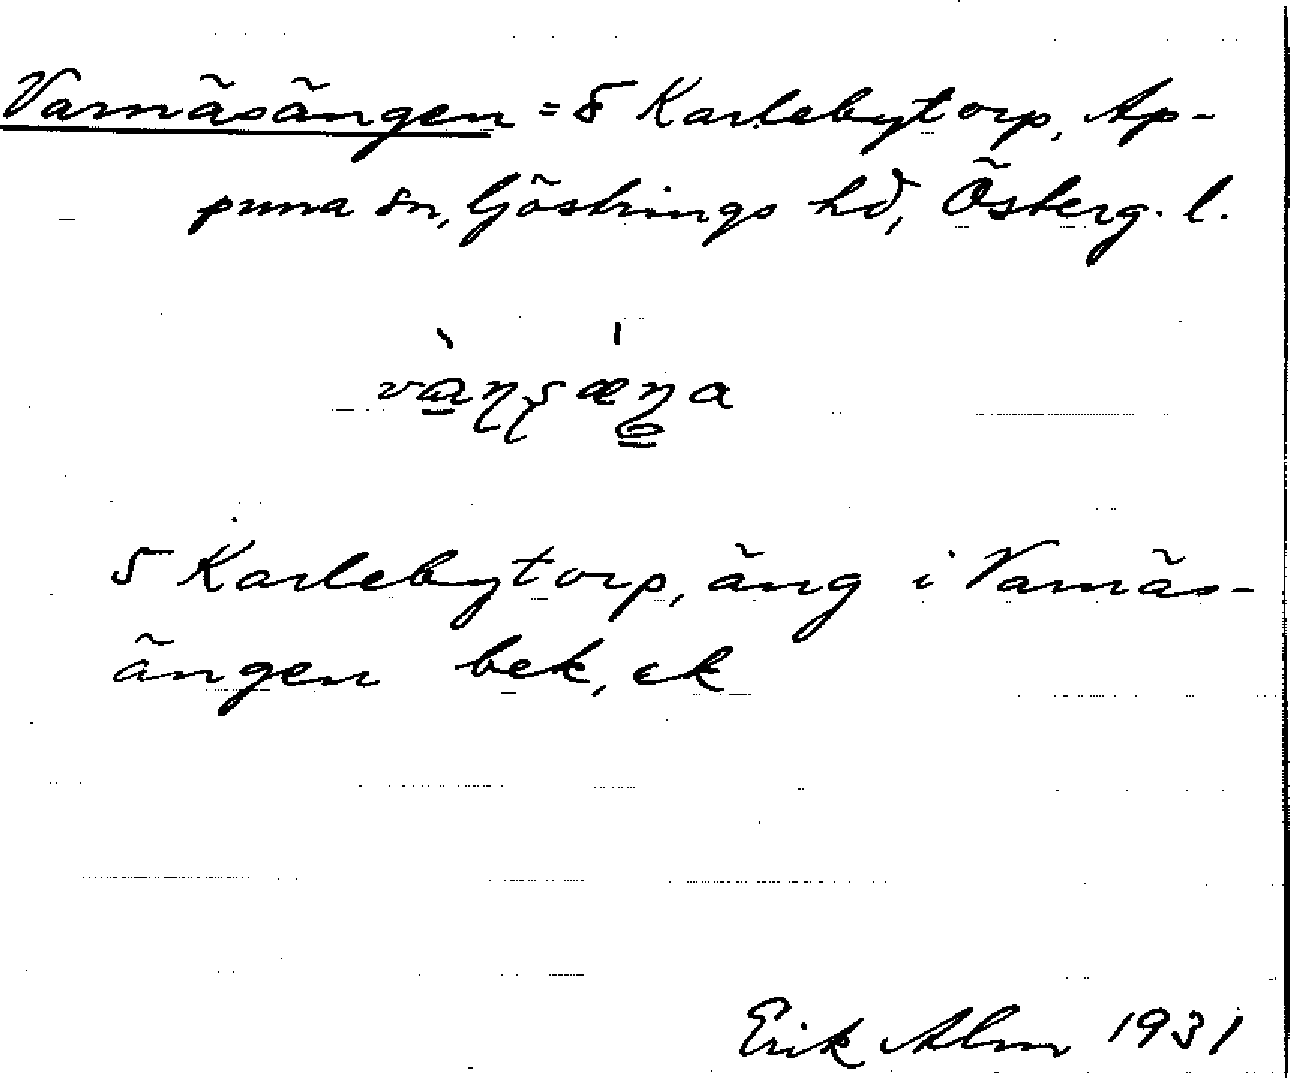 Varnäsängen = 5 Karlebytorp, Ap-
puna sn, Göstrings hd, Österg. l.
5 Karlebytorp, äng i Varnäs-
ängen bek, ek
Erik Alm 1931